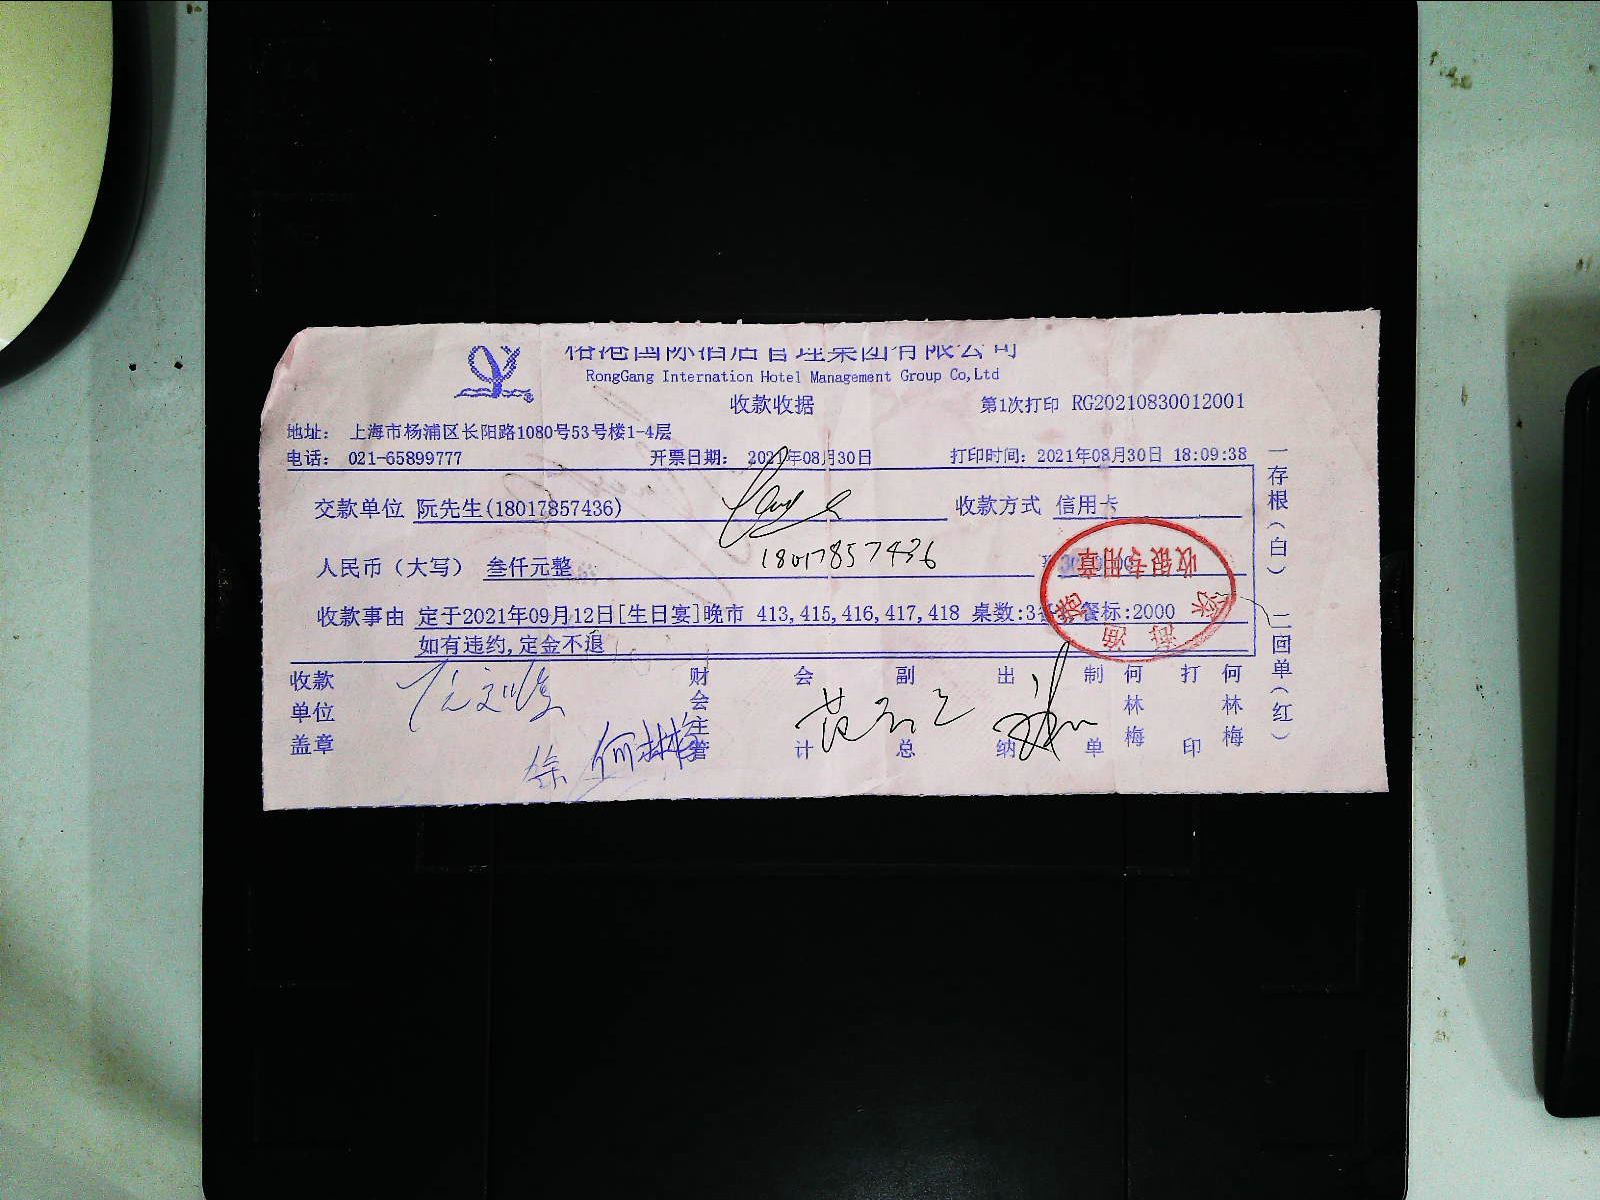 榕港国际酒店管理集团有限公司
RongGang Internation Hotel Management Group Co,Ltd
收款收据
第1次打印 RG20210830012001
地址: 上海市杨浦区长阳路1080号53号楼1-4层
电话: 021-65899777 开票日期: 2021年08月30日 打印时间: 2021年08月30日 18:09:38
交款单位 阮先生(18017857436) 收款方式 信用卡
18017857436
人民币(大写) 叁仟元整
收款事由 定于2021年09月12日[生日宴]晚市 413,415,416,417,418 桌数:3 餐标:2000
如有违约,定金不退
收款单位盖章 财会主管 会计 副总 出纳 制单 何林梅 打印 何林梅
徐 何林梅
一存根(白) 二回单(红)
收银专用章